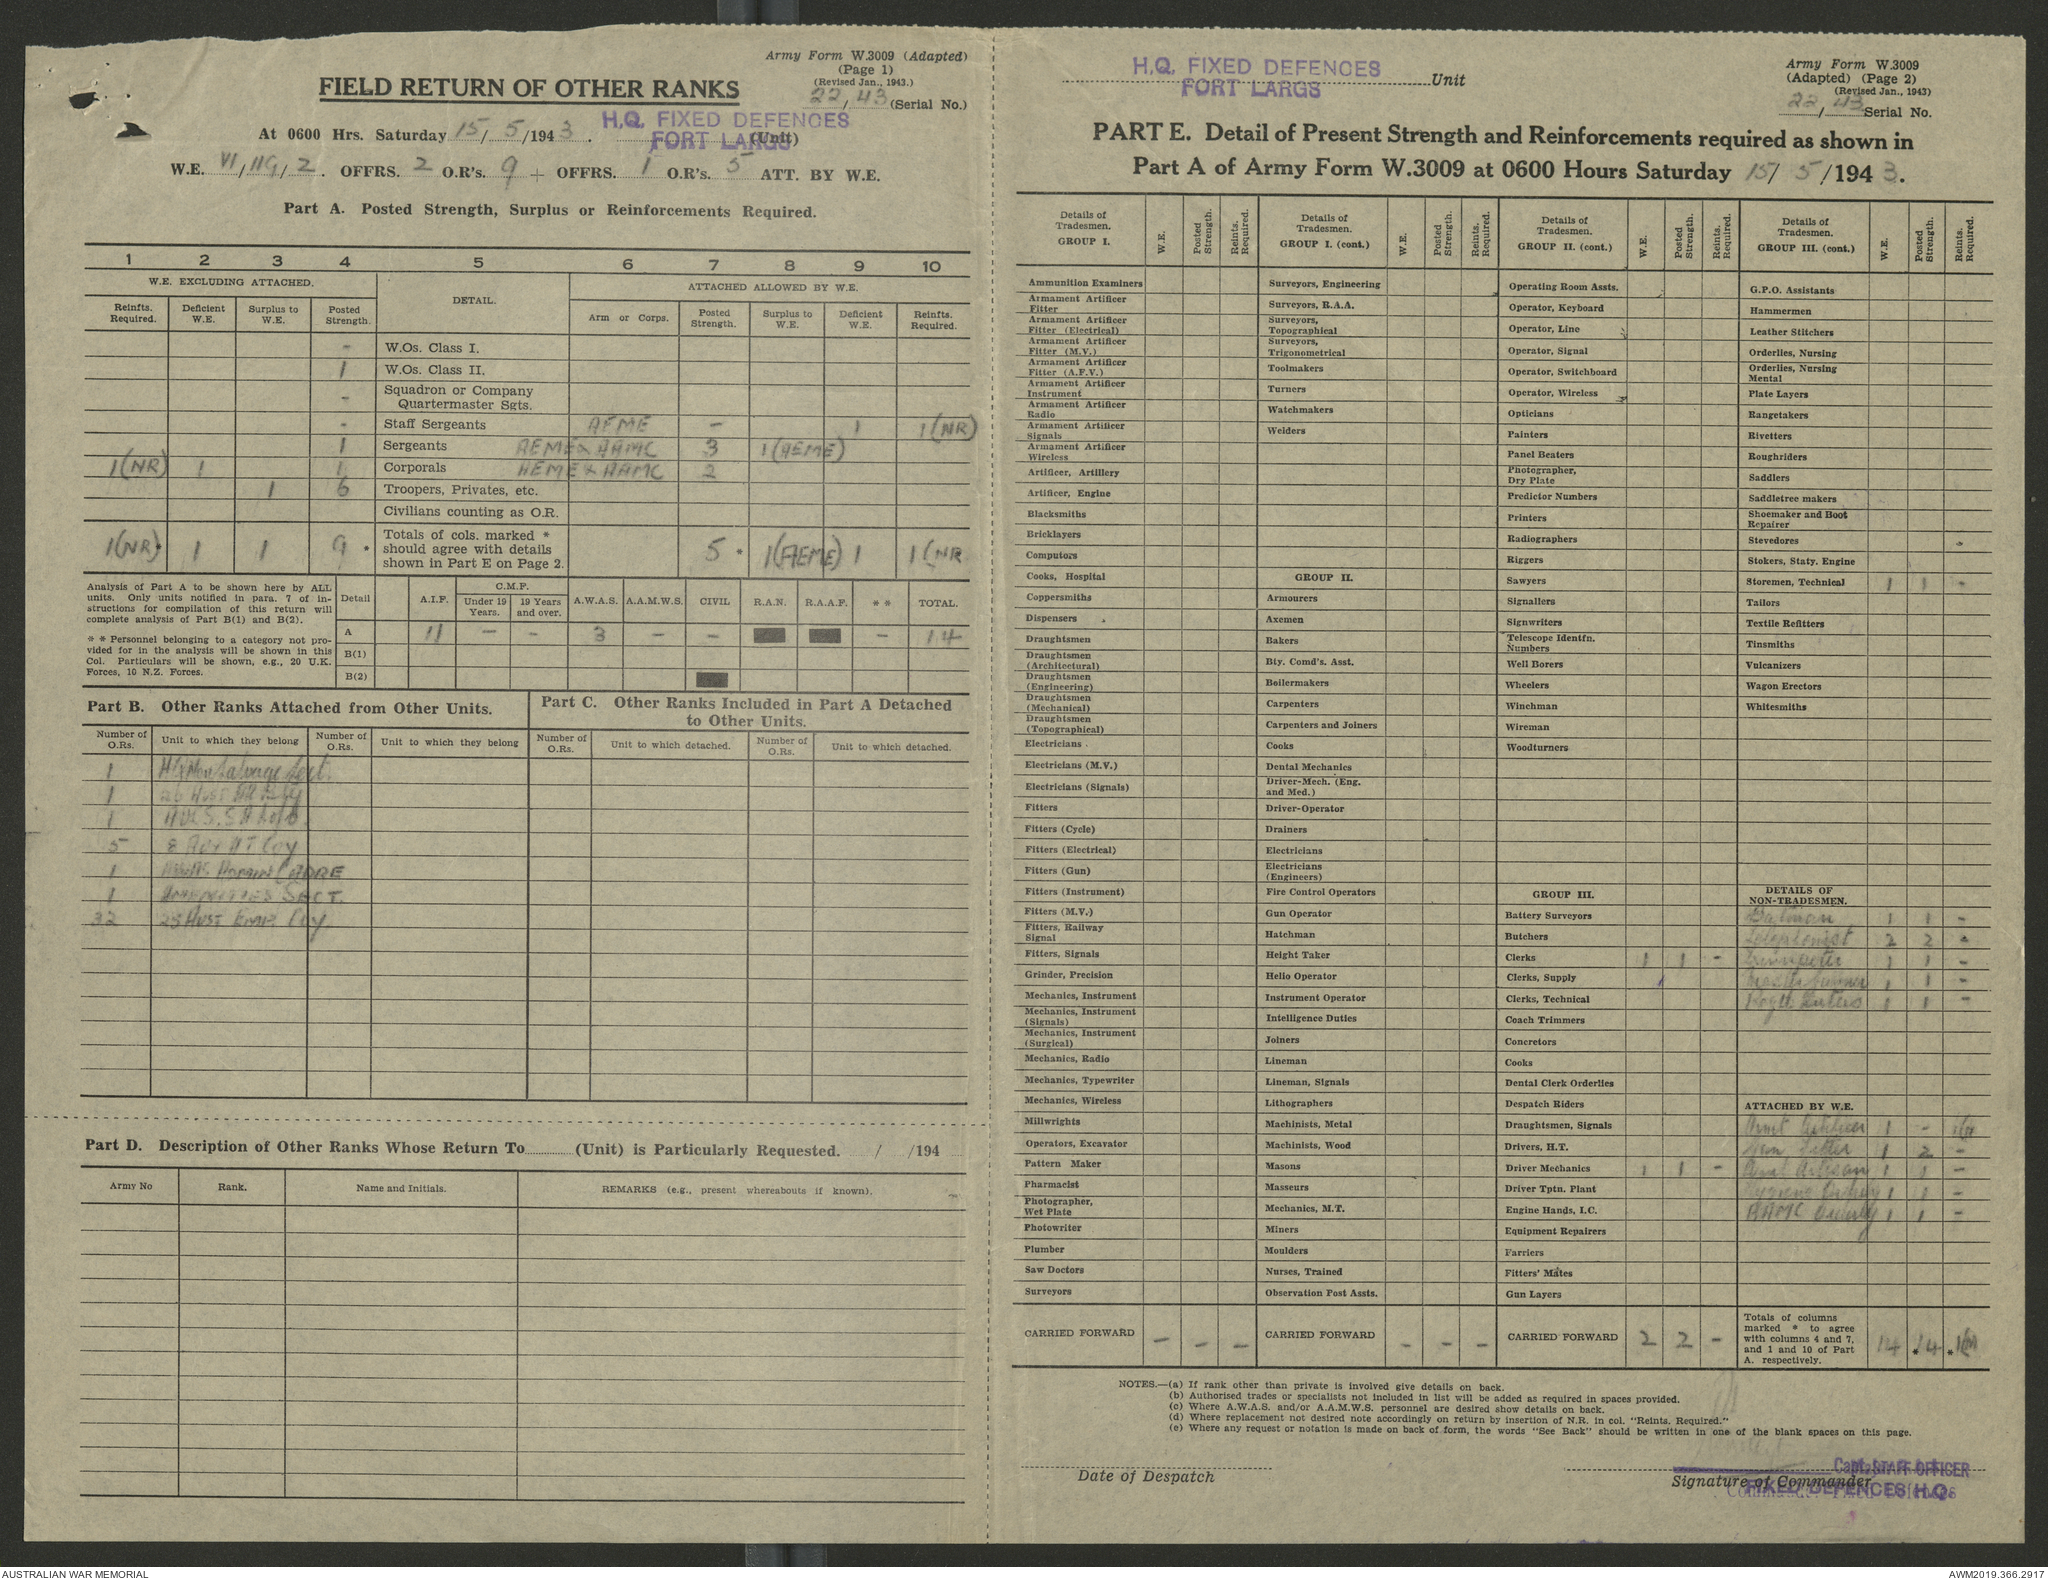 Army Form W.3009 (Adapted)
(Page 1)
(Revised Jan., 1943.)
FIELD RETURN OF OTHER RANKS
22/43 (Serial No.)
H.Q. FIXED DEFENCES
FORT LARGS
At 0600 Hrs. Saturday 15/5/1943. (Unit)
W.E. VI/119/2. OFFRS. 2 O.R's. 9 + OFFRS. 1 O.R's. 5 ATT. BY W.E.
Part A. Posted Strength, Surplus or Reinforcements Required.
1 2 3 4 5 6 7 8 9 10
W.E. EXCLUDING ATTACHED. DETAIL. ATTACHED ALLOWED BY W.E.
Reinfts. Required. Deficient W.E. Surplus to W.E. Posted Strength. Arm or Corps. Posted Strength. Surplus to W.E. Deficient W.E. Reinfts. Required.
- W.Os. Class I.
1 W.Os. Class II.
- Squadron or Company Quartermaster Sgts.
- Staff Sergeants AEME - 1 1(NR)
1 Sergeants AEME & AAMC 3 1(AEME)
1(NR) 1 1 Corporals AEME & AAMC 2
1 6 Troopers, Privates, etc.
Civilians counting as O.R.
1(NR)* 1 1 9 * Totals of cols. marked * should agree with details shown in Part E on Page 2. 5 * 1(AEME) 1 1(NR
Analysis of Part A to be shown here by ALL units. Only units notified in para. 7 of instructions for compilation of this return will complete analysis of Part B(1) and B(2).
* * Personnel belonging to a category not provided for in the analysis will be shown in this Col. Particulars will be shown, e.g., 20 U.K. Forces, 10 N.Z. Forces.
Detail A.I.F. C.M.F. Under 19 Years. 19 Years and over. A.W.A.S. A.A.M.W.S. CIVIL R.A.N. R.A.A.F. * * TOTAL.
A 11 - - 3 - - - 14
B(1)
B(2)
Part B. Other Ranks Attached from Other Units.
Part C. Other Ranks Included in Part A Detached to Other Units.
Number of O.Rs. Unit to which they belong Number of O.Rs. Unit to which they belong Number of O.Rs. Unit to which detached. Number of O.Rs. Unit to which detached.
1 Salvage Sect.
1
1
5 8 Coy
1 CADRE
1 Amenities Sect.
32 Aust Emp. Coy.
Part D. Description of Other Ranks Whose Return To (Unit) is Particularly Requested. / /194
Army No Rank. Name and Initials. REMARKS (e.g., present whereabouts if known).
H.Q. FIXED DEFENCES
FORT LARGS
Unit
Army Form W.3009
(Adapted) (Page 2)
(Revised Jan., 1943)
22/43 Serial No.
PART E. Detail of Present Strength and Reinforcements required as shown in
Part A of Army Form W.3009 at 0600 Hours Saturday 15/5/1943.
Details of Tradesmen. GROUP I. W.E. Posted Strength. Reints. Required.
Ammunition Examiners
Armament Artificer Fitter
Armament Artificer Fitter (Electrical)
Armament Artificer Fitter (M.V.)
Armament Artificer Fitter (A.F.V.)
Armament Artificer Instrument
Armament Artificer Radio
Armament Artificer Signals
Armament Artificer Wireless
Artificer, Artillery
Artificer, Engine
Blacksmiths
Bricklayers
Computors
Cooks, Hospital
Coppersmiths
Dispensers
Draughtsmen
Draughtsmen (Architectural)
Draughtsmen (Engineering)
Draughtsmen (Mechanical)
Draughtsmen (Topographical)
Electricians
Electricians (M.V.)
Electricians (Signals)
Fitters
Fitters (Cycle)
Fitters (Electrical)
Fitters (Gun)
Fitters (Instrument)
Fitters (M.V.)
Fitters, Railway Signal
Fitters, Signals
Grinder, Precision
Mechanics, Instrument
Mechanics, Instrument (Signals)
Mechanics, Instrument (Surgical)
Mechanics, Radio
Mechanics, Typewriter
Mechanics, Wireless
Millwrights
Operators, Excavator
Pattern Maker
Pharmacist
Photographer, Wet Plate
Photowriter
Plumber
Saw Doctors
Surveyors
CARRIED FORWARD - - -
Details of Tradesmen. GROUP I. (cont.) W.E. Posted Strength. Reints. Required.
Surveyors, Engineering
Surveyors, R.A.A.
Surveyors, Topographical
Surveyors, Trigonometrical
Toolmakers
Turners
Watchmakers
Welders
GROUP II.
Armourers
Axemen
Bakers
Bty. Comd's. Asst.
Boilermakers
Carpenters
Carpenters and Joiners
Cooks
Dental Mechanics
Driver-Mech. (Eng. and Med.)
Driver-Operator
Drainers
Electricians
Electricians (Engineers)
Fire Control Operators
Gun Operator
Hatchman
Height Taker
Helio Operator
Instrument Operator
Intelligence Duties
Joiners
Lineman
Lineman, Signals
Lithographers
Machinists, Metal
Machinists, Wood
Masons
Masseurs
Mechanics, M.T.
Miners
Moulders
Nurses, Trained
Observation Post Assts.
CARRIED FORWARD - - -
Details of Tradesmen. GROUP II. (cont.) W.E. Posted Strength. Reints. Required.
Operating Room Assts.
Operator, Keyboard
Operator, Line
Operator, Signal
Operator, Switchboard
Operator, Wireless
Opticians
Painters
Panel Beaters
Photographer, Dry Plate
Predictor Numbers
Printers
Radiographers
Riggers
Sawyers
Signallers
Signwriters
Telescope Identfn. Numbers
Well Borers
Wheelers
Winchman
Wireman
Woodturners
GROUP III.
Battery Surveyors
Butchers
Clerks 1 1 -
Clerks, Supply
Clerks, Technical
Coach Trimmers
Concretors
Cooks
Dental Clerk Orderlies
Despatch Riders
Draughtsmen, Signals
Drivers, H.T.
Driver Mechanics 1 1 -
Driver Tptn. Plant
Engine Hands, I.C.
Equipment Repairers
Farriers
Fitters' Mates
Gun Layers
CARRIED FORWARD 2 2 -
Details of Tradesmen. GROUP III. (cont.) W.E. Posted Strength. Reints. Required.
G.P.O. Assistants
Hammermen
Leather Stitchers
Orderlies, Nursing
Orderlies, Nursing Mental
Plate Layers
Rangetakers
Rivetters
Roughriders
Saddlers
Saddletree makers
Shoemaker and Boot Repairer
Stevedores
Stokers, Staty. Engine
Storemen, Technical 1 1 -
Tailors
Textile Refitters
Tinsmiths
Vulcanizers
Wagon Erectors
Whitesmiths
DETAILS OF NON-TRADESMEN.
Batman 1 1 -
Telephonist 2 2 -
1 1 -
Master Gunner 1 1 -
1 1 -
ATTACHED BY W.E.
Armt Artificer 1 -
Fitter 1 2 -
Armt Artisan 1 1 -
Hygiene Orderly 1 1 -
AAMC Orderly 1 1 -
Totals of columns marked * to agree with columns 4 and 7, and 1 and 10 of Part A. respectively. 14 *14 *1(NR
NOTES.—(a) If rank other than private is involved give details on back.
(b) Authorised trades or specialists not included in list will be added as required in spaces provided.
(c) Where A.W.A.S. and/or A.A.M.W.S. personnel are desired show details on back.
(d) Where replacement not desired note accordingly on return by insertion of N.R. in col. "Reints. Required."
(e) Where any request or notation is made on back of form, the words "See Back" should be written in one of the blank spaces on this page.
Date of Despatch
Signature of Commander
Capt. STAFF OFFICER
FIXED DEFENCES H.Q.
AUSTRALIAN WAR MEMORIAL
AWM2019.366.2917